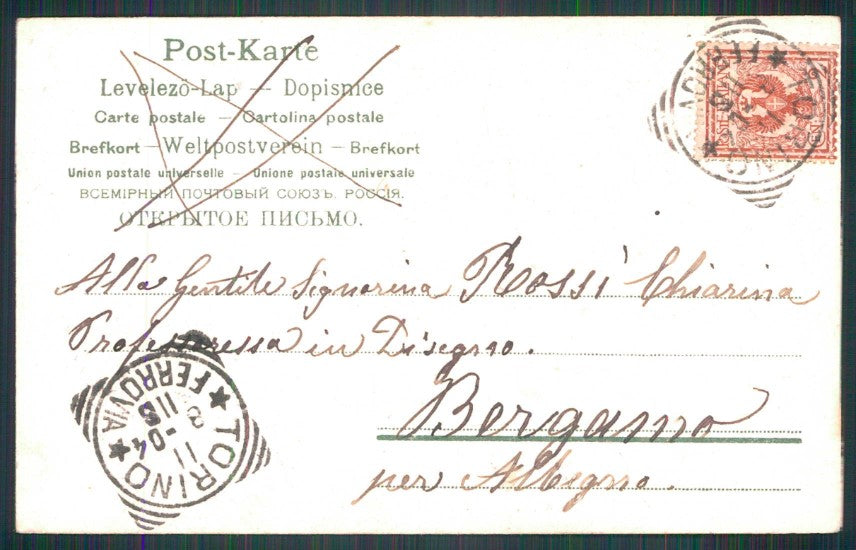 Post-Karte
Levelezö-Lap — Dopisnice
Carte postale - Cartolina postale
Brefkort — Weltpostverein — Brefkort
Union postale universelle — Unione postale universale
ВСЕМІРНЫЙ ПОЧТОВЫЙ СОЮЗЪ. РОССІЯ.
ОТКРЫТОЕ ПИСЬМО.
Alla Gentile Signorina Rossi Chiarina
Professoressa in Disegno.
Bergamo
per Albegno.
TORINO ★ FERROVIA ★
11 - 04
TORINO
FERROVIA